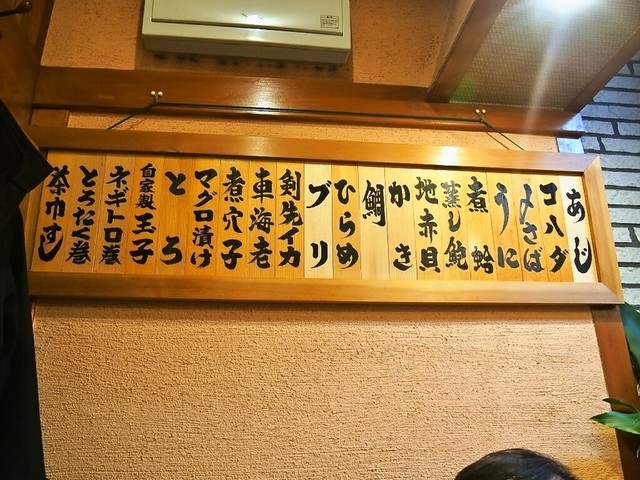 あじ
コハダ
〆さば
うに
煮蛤
蒸し鮑
地赤貝
かき
鯛
ひらめ
ブリ
剣先イカ
車海老
煮穴子
マグロ漬け
とろ
自家製玉子
ネギトロ巻
とろたく巻
茶巾すし